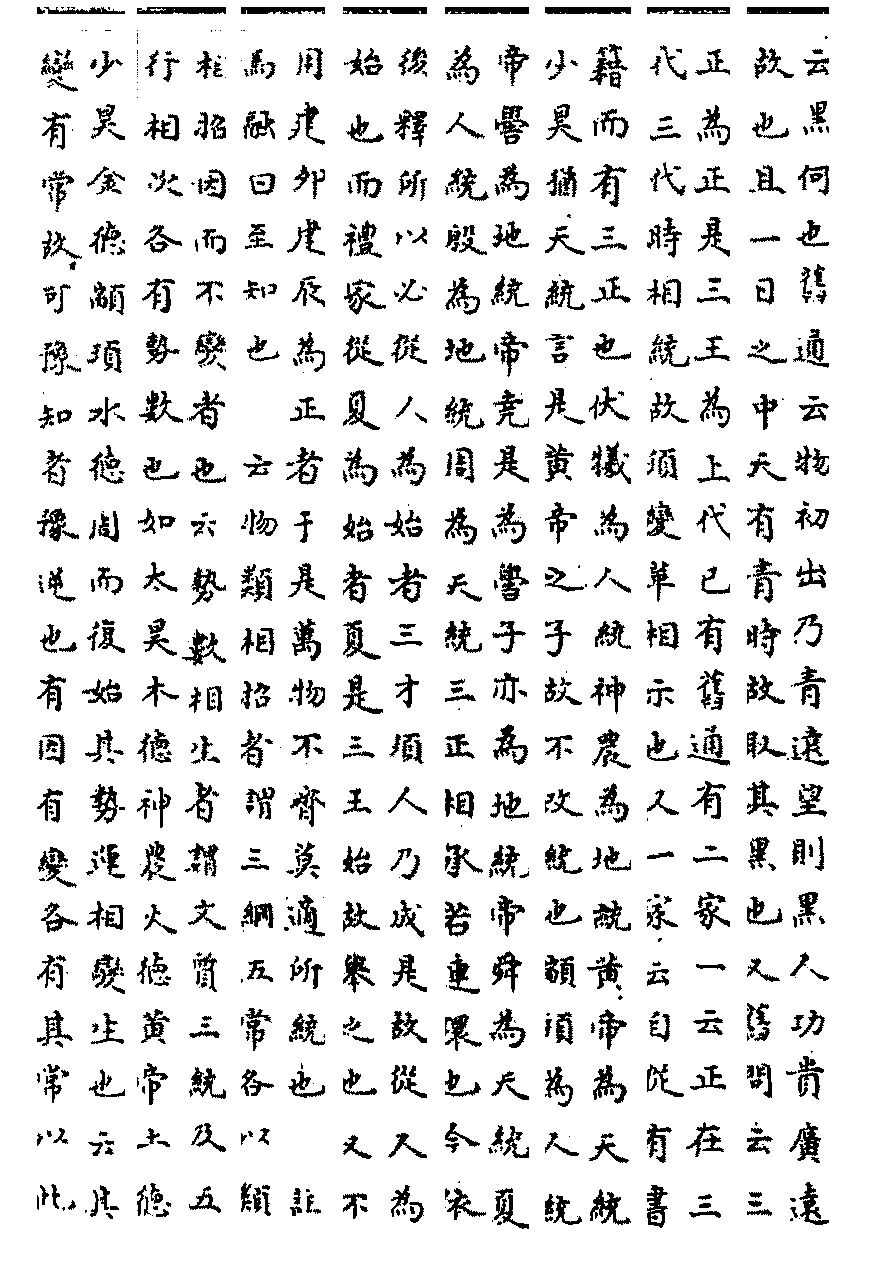 云黑何也舊通云物初出乃青遠望則黑人功貴廣遠
故也且一日之中天有青時故取其黑也又舊問云三
正為正是三王為上代已有舊通有二家一云正在三
代三代時相統故須變革相示也又一家云自從有書
籍而有三正也伏犧為人統神農為地統黄帝為天統
少昊猶天統言是黄帝之子故不改統也顓頊為人統
帝嚳為地統帝尭是為嚳子亦為地統帝舜為天統夏
為人統殷為地統周為天統三正相承若連環也今依
後釋所以必從人為始者三才須人乃成是故從人為
始也而禮家從夏為始者夏是三王始故舉之也又不
用建夘建辰為正者于是萬物不齊莫適所統也 註
馬融曰至知也 云物類相招者謂三綱五常各以類
相招因而不變者也云勢數相生者謂文質三統及五
行相次各有勢數也如太昊木德神農火德黄帝土德
少昊金德顓頊水德周而復始其勢運相變生也云其
變有常故可豫知者豫逆也有因有變各有其常以此